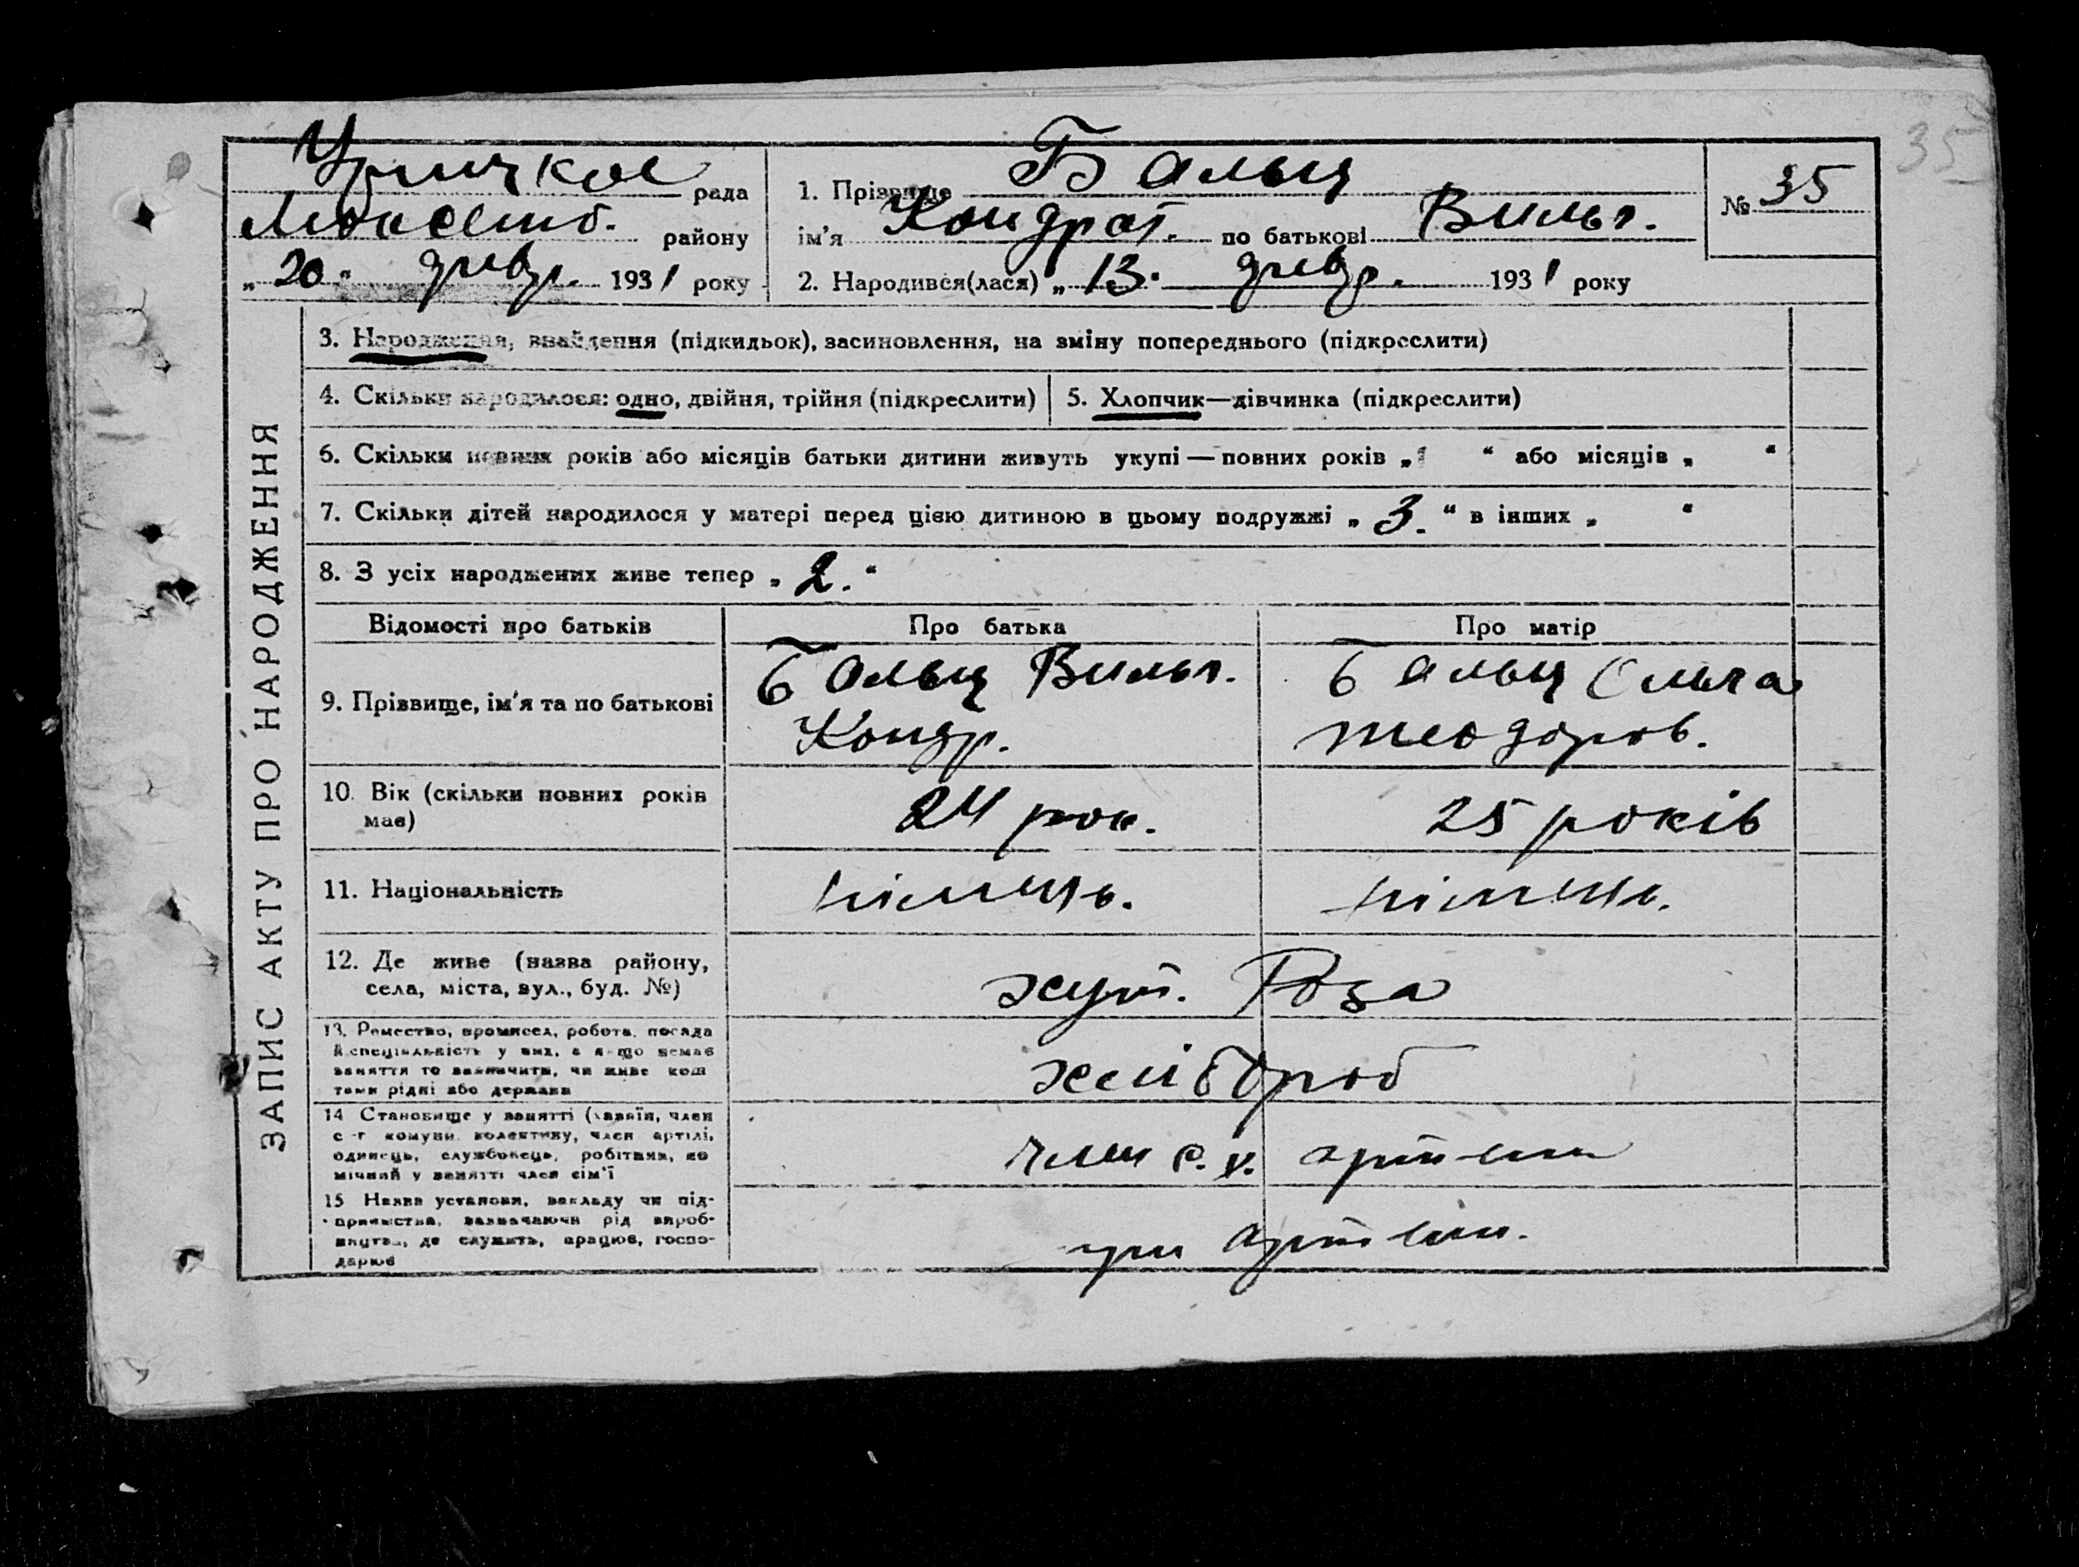 35
рада
району
„20“ 1931 року
1. Прізвище Бальц
ім'я Кондрат. по батькові Вильг.
2. Народився(лася) „13“ 1931 року
№ 35
ЗАПИС АКТУ ПРО НАРОДЖЕННЯ
3. Народження, знайдення (підкидьок), засиновлення, на зміну попереднього (підкреслити)
4. Скільки народилося: одно, двійня, трійня (підкреслити)
5. Хлопчик—дівчинка (підкреслити)
6. Скільки повних років або місяців батьки дитини живуть укупі — повних років „ “ або місяців „ “
7. Скільки дітей народилося у матері перед цією дитиною в цьому подружжі „3.“ в інших „ “
8. З усіх народжених живе тепер „2.“
Відомості про батьків
Про батька
Про матір
9. Прізвище, ім'я та по батькові
Бальц Вильг.
Кондр.
Бальц Ольга
Теодоров.
10. Вік (скільки повних років
має)
24 рок.
25 років
11. Національність
німець.
німець.
12. Де живе (назва району,
села, міста, вул., буд. №)
хут. Роза
13. Ремество, промисел, робота, посада
й спеціяльність у них, а якщо немає
заняття то зазначити, чи живе кош
тами рідні або держави
хлібороб
14 Становище у занятті (хазяїн, член
с-г комуни, колективу, член артілі,
одинець, службовець, робітник, по
мічний у занятті член сім'ї
член с. г. артели
15 Назва установи, закладу чи під-
приємства, зазначаючи рід вироб-
ництва, де служить, працює, госпо-
дарює
при артели.